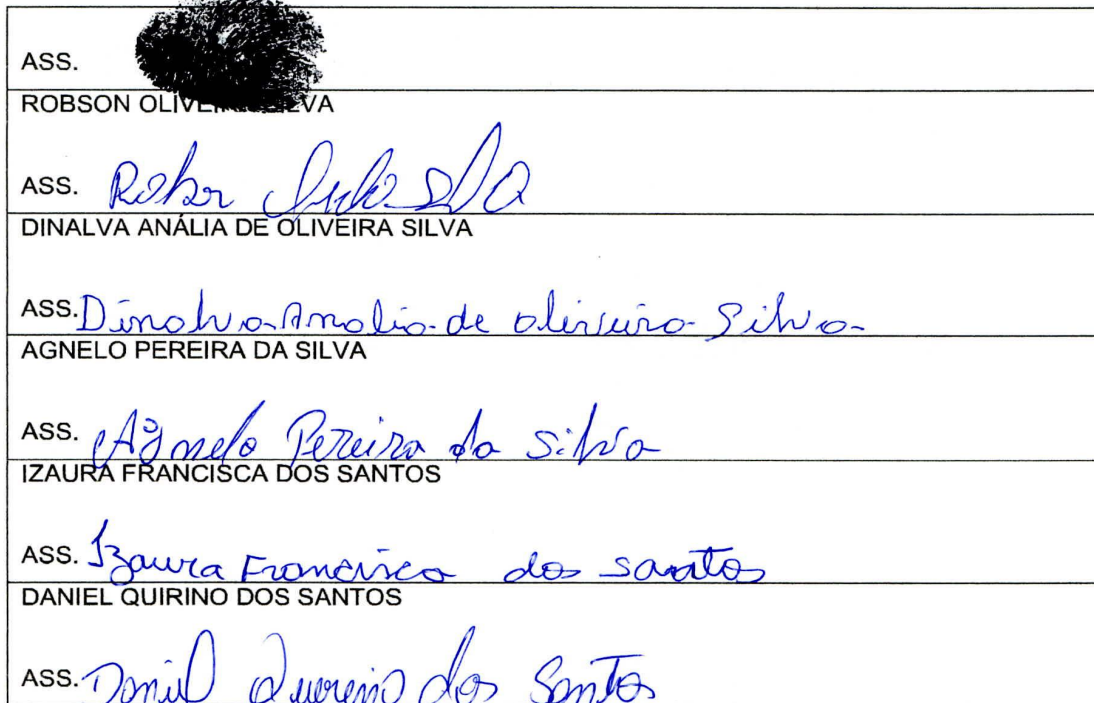 ASS.
ROBSON OLIVEIRA SILVA
ASS. Robson
DINALVA ANÁLIA DE OLIVEIRA SILVA
ASS. Dinalva Analia de Oliveira Silva
AGNELO PEREIRA DA SILVA
ASS. Agnelo Pereira da Silva
IZAURA FRANCISCA DOS SANTOS
ASS. Izaura Francisca dos Santos
DANIEL QUIRINO DOS SANTOS
ASS. Daniel Quirino dos Santos